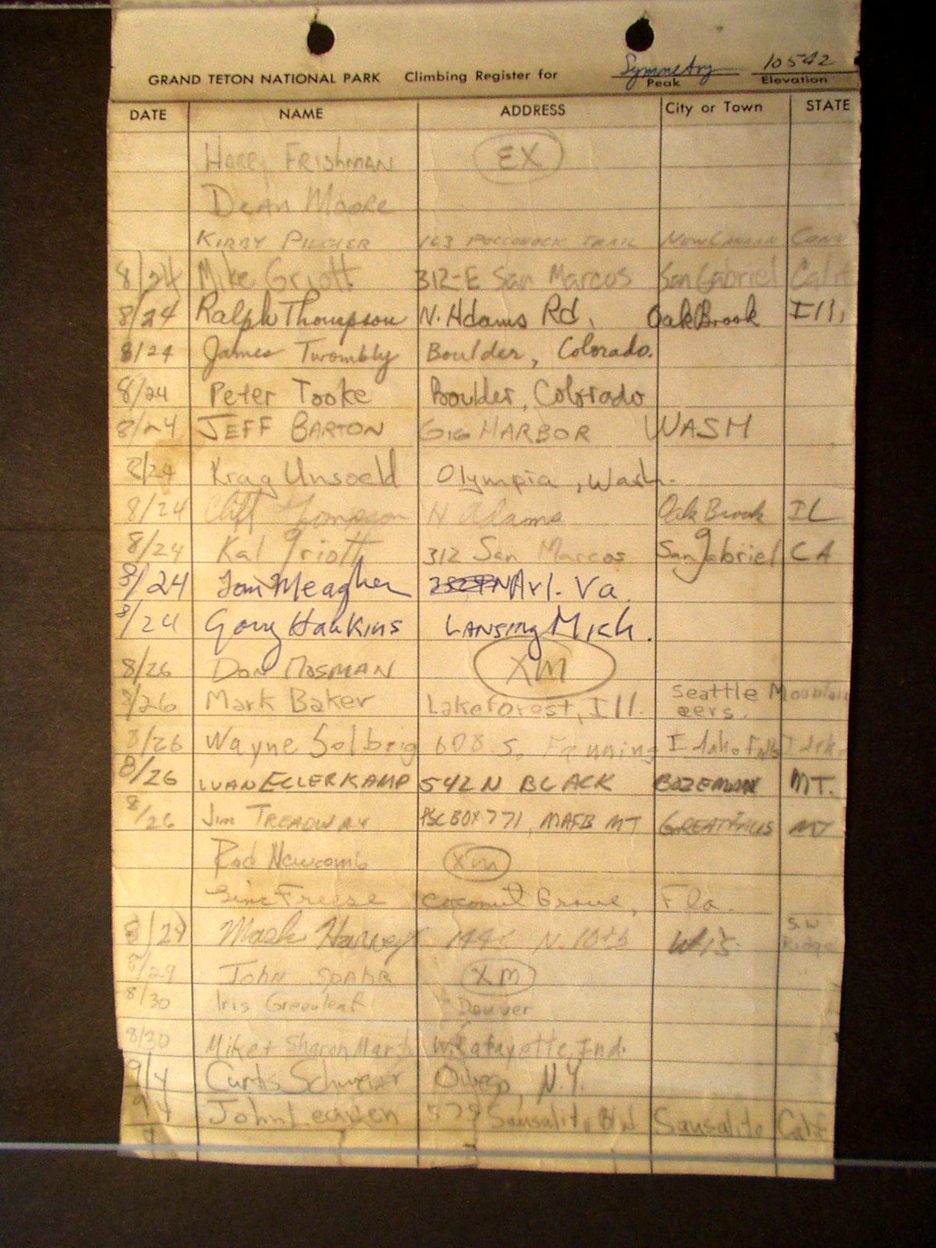 Symmetry 10542
GRAND TETON NATIONAL PARK Climbing Register for Peak Elevation
DATE NAME ADDRESS City or Town STATE
Harry FRISHMAN EX
Dean Moore
KIRBY PILCHER 163 TRAIL NEW CANAAN Conn
8/24 Mike Griott 312-E San Marcos San Gabriel Calif
8/24 Ralph Thompson N. Adams Rd, Oak Brook Ill,
8/24 James Twombly Boulder, Colorado.
8/24 Peter Tooke Boulder, Colorado
8/24 JEFF BARTON GIG HARBOR WASH
8/24 Krag Unsoeld Olympia, Wash.
8/24 Cliff Tompson N Adams Oak Brook IL
8/24 Kal Griott 312 San Marcos San Gabriel CA
8/24 Tom Meagher Arl. Va.
8/24 Gary Hawkins LANSING Mich.
8/26 DON MOSMAN XM
8/26 Mark Baker Lakeforest, Ill. Seattle Mountain
eers.
8/26 Wayne Solbrig 608 S. Fanning Idaho Falls Idaho
8/26 IVAN ELLERKAMP 542 N BLACK BOZEMAN MT.
8/26 Jim TREADWAY PSC BOX 771, MAFB MT GREAT FALLS MT
Rod Newcomb XM
Freese Coconut Grove, Fla.
8/29 Mark Harvey N. 10th Wis. S.W
Ridge
8/29 JOHN SPAHR XM
8/30 Iris Greenleaf Denver
8/30 Mike + Sharon W. Lafayette, Ind.
9/4 Curtis N.Y.
9/4 John 579 Sausalito Blvd Sausalito Calif